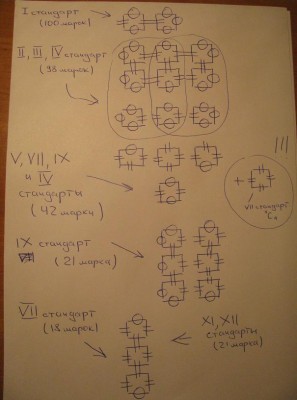 I стандарт
(100 марок)
II, III, IV стандарт
(98 марок)
V, VII, IX
и IV
стандарты
(42 марки)
+
VII стандарт
"С"
IX стандарт
(21 марка)
VII стандарт
(18 марок)
XI, XII
стандарты
(21 марка)